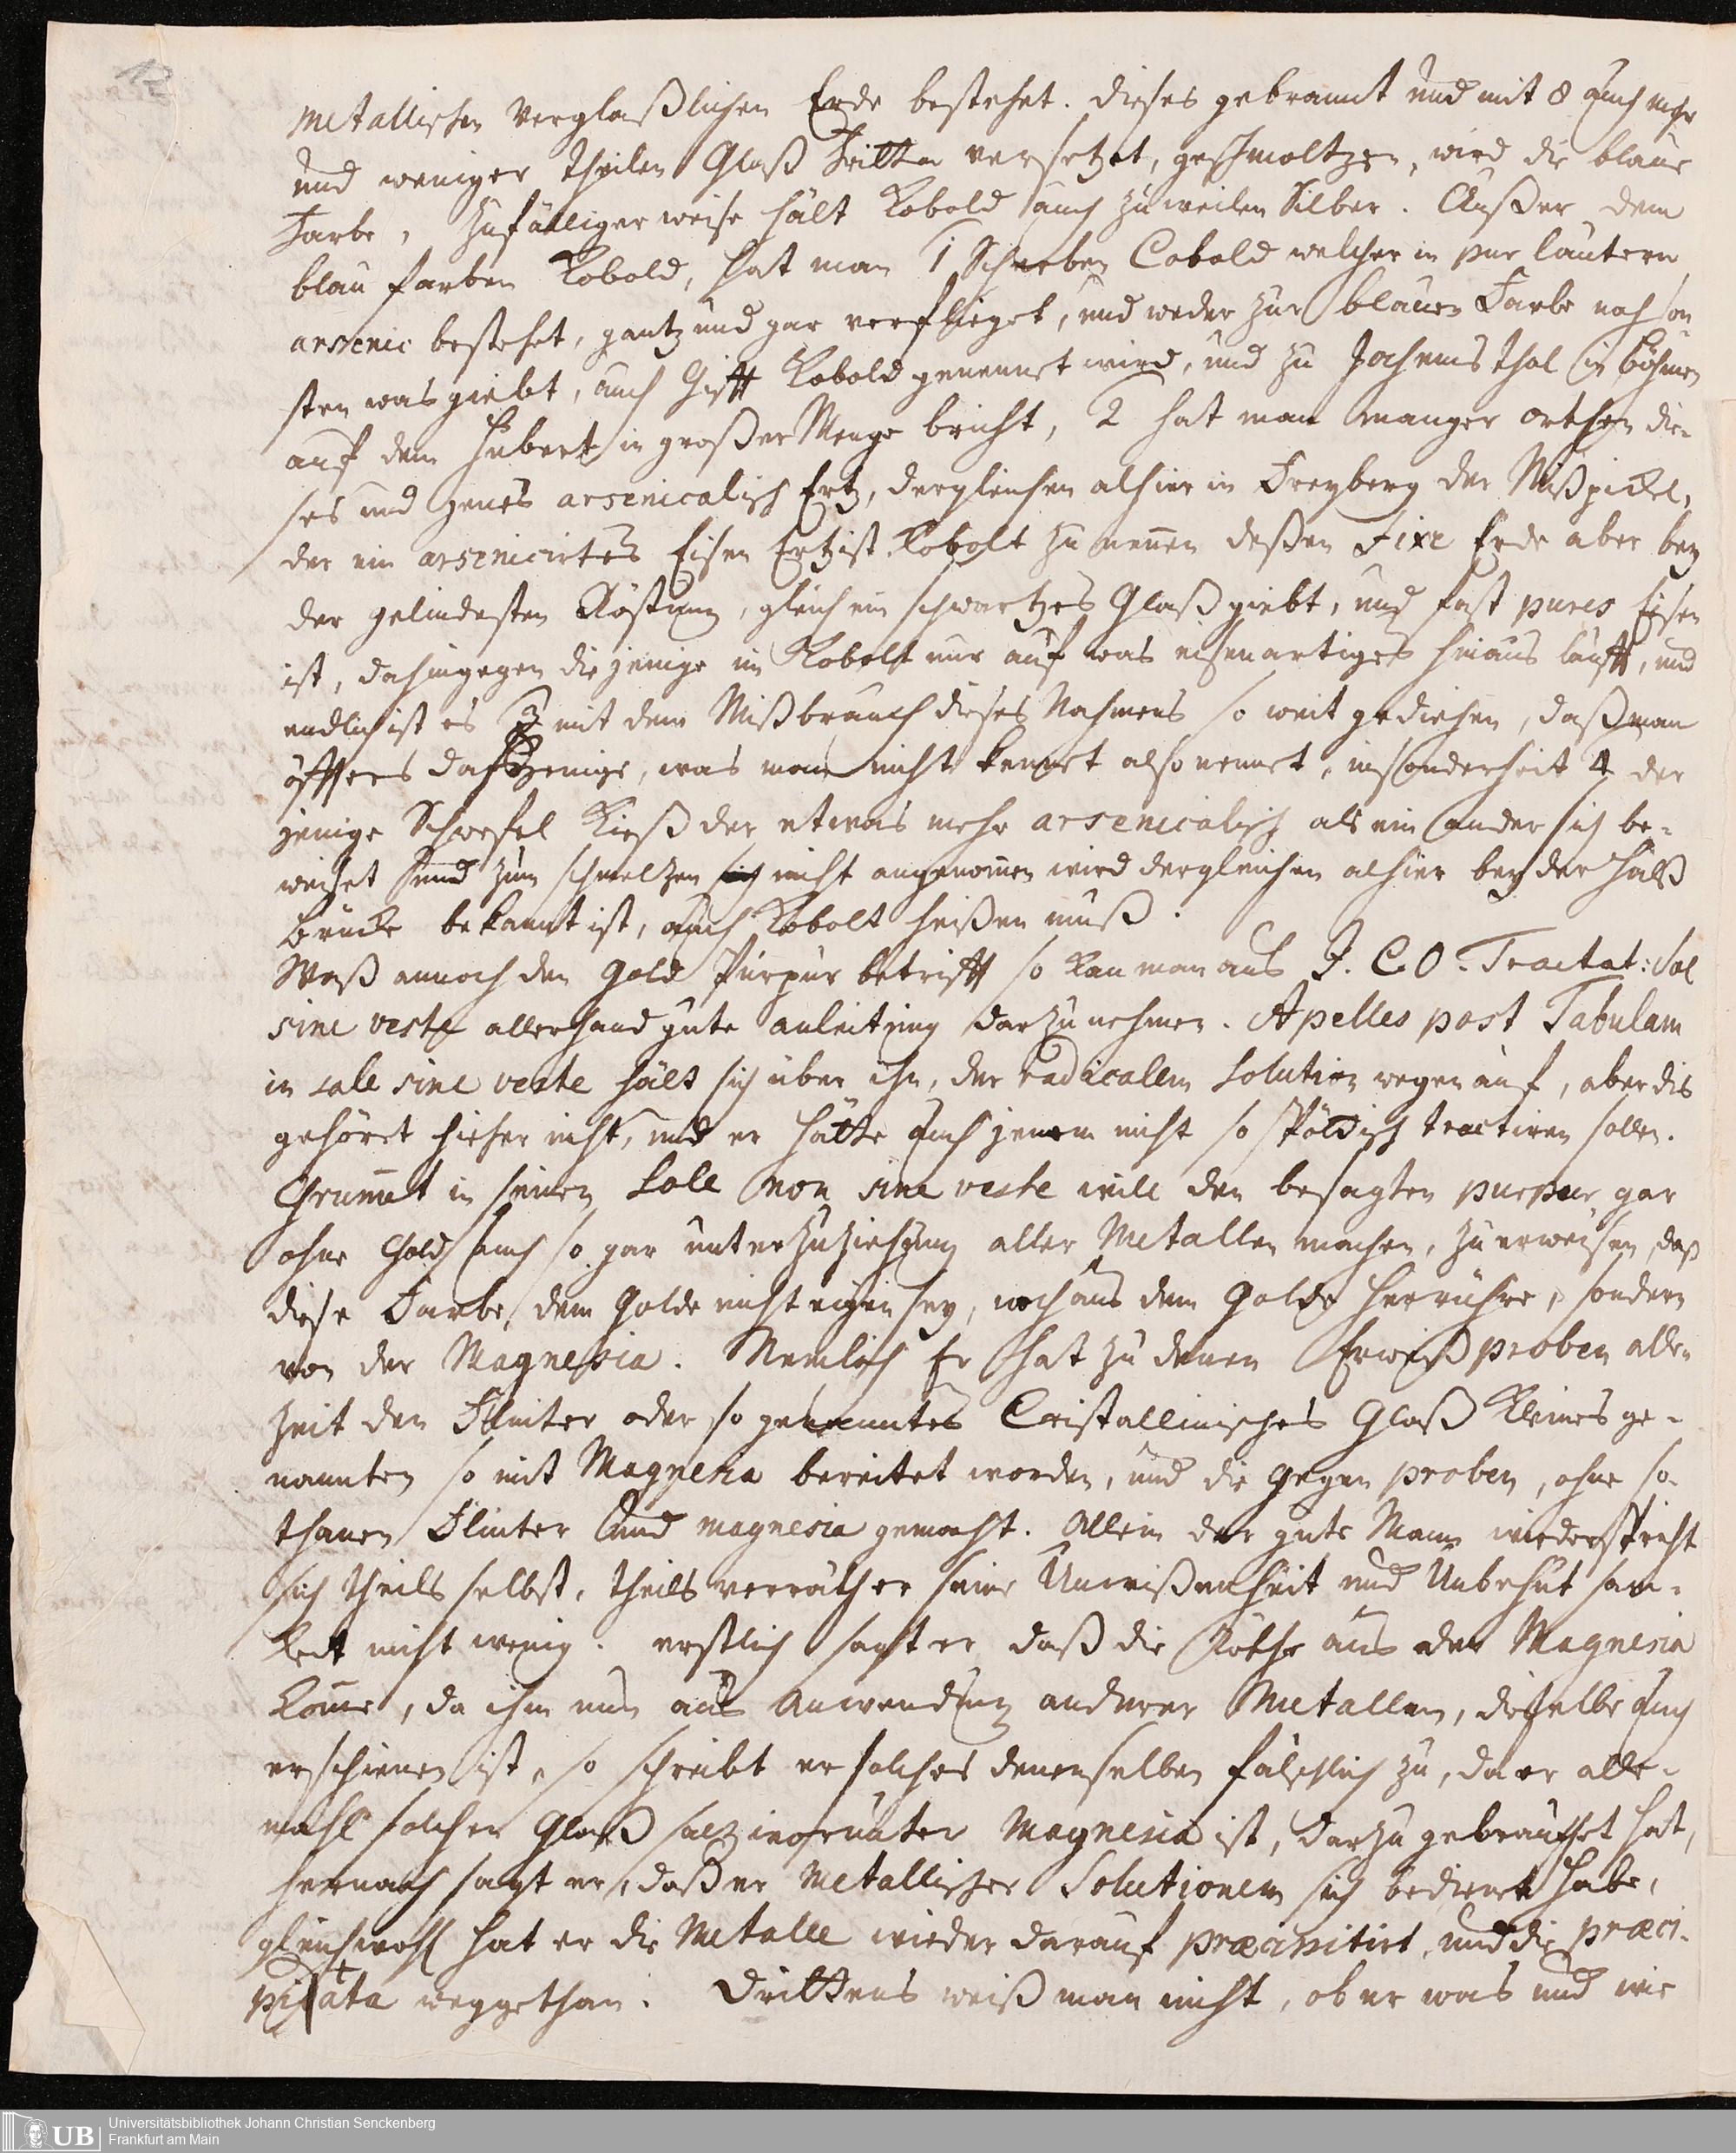 12
metallischen Verglaßlichen Erde bestehet. dieses gebrannt und mit 8 auch mehr
und weniger theilen Glaß Fritta versetzet, geschmoltzen, wird die blaue
Farbe, zufälliger weise hält Kobold auch zuweilen Silber. Außer dem
blau farben Kobold, hat man 1 Scherben Cobold welcher in pur lautern
arsenic bestehet, gantz und gar verflieget, und weder zur blauen Farbe noch son
sten was giebt, auch Gifft Kobold genennet wird, und zu Jochimsthal in Böhmen
auf dem Hubert in großer Menge bricht, 2 hat man manger orthen die-
ses und jenes arsenicalisch Ertz, dergleichen alhier in Freyberg der Mißpickel,
der ein arsenicirtes Eisen Ertz ist Kobolt zu nennen deßen Fixe Erde aber bey
der gelindesten Röstung, gleich ein schwartzes Glaß giebt, und fast pures Eisen
ist, dahingegen die jenige im Kobolt nur auf was eisenartiges hinaus läufft, und
endlich ist es 3 mit dem Mißbrauch dieses Nahmens so weit gediehen, daß man
öffters dasjenige, was man nicht kennet also nennet, insonderheit 4 der
jenige Schwefel Kieß der etwas mehr arsenicalisch als ein ander sich be-
weiset und zum schmeltzen nicht angenommen wird dergleichen alhier bey der Halß
brücke bekannt ist, auch Kobolt heißen muß.
Waß annoch den Gold Purpur betrifft so kan man aus J. C. O. Tractat: Sol
sine veste allerhand gute anleitung darzu nehmen. Apelles post Tabulam
in sole sine veste hält sich über ihn, der radicalen Solution wegen auf, aber dis
gehöret hieher nicht, und er hätte auch jenem nicht so spöttisch tractiren sollen.
Grummet in seinen Sole non sine veste will den besagten purpur gar
ohne Gold auch so gar unter zuziehung aller Metallen machen, zu erweisen, daß
diese Farbe, dem Golde nicht eigen sey, noch aus dem Golde herrühre, sondern
von der Magnesia. Nemlich Er hat zu denen Erweiß proben alle-
zeit den Flinter oder so genanntes Cristallinisches Glaß Kleines ge-
nannten so mit Magnesia bereitet worden, und die Gegen proben, ohne so-
thanen Flinter und magnesia gemacht. Allein der gute Mann wiederspricht
sich theils selbst, theils verräth er seine Unwißenheit und Unbehutsam-
keit nicht wenig. erstlich sagt er daß die Röthe aus der Magnesia
komme, da ihm nun aus Anwendung anderer Metallen, dieselbe auch
erschienen ist, so schreibt er solches denenselben fälschlich zu, da er alle-
mahl solchen Glaß satz worunter Magnesia ist, darzu gebrauchet hat,
hernach sagt er, daß er Metallischer Solutionen sich bedienet habe,
gleichwohl hat er die Metalle wieder darauf præcipitirt, und die præci-
pitata weggethan. Drittens weiß man nicht, ob er was und wie
UB Universitätsbibliothek Johann Christian Senckenberg
Frankfurt am Main